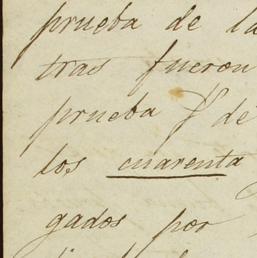 prueba de la
tras fueron
prueba y de
los cuarenta
gados por